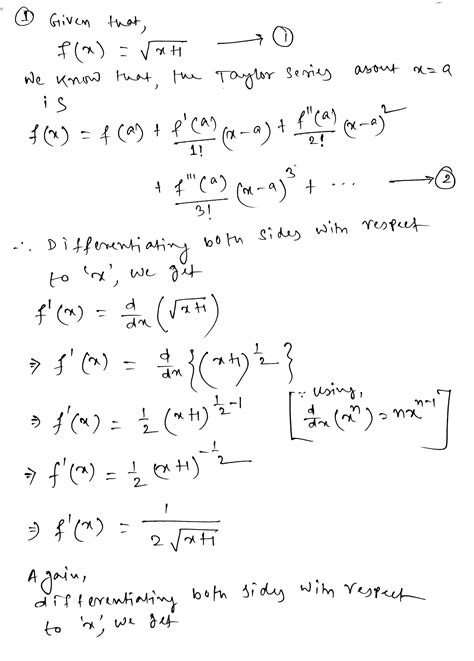 ① Given that,
f(x) = √x+1 ⟶ ①
We know that, the Taylor series about x=a
is
f(x) = f(a) + f'(a)/1! (x-a) + f''(a)/2! (x-a)²
+ f'''(a)/3! (x-a)³ + ... ⟶ ②
∴ Differentiating both sides with respect
to 'x', we get
f'(x) = d/dx (√x+1)
⇒ f'(x) = d/dx {(x+1)^½}
⇒ f'(x) = ½ (x+1)^(½-1) [∵ using, d/dx (xⁿ) = nxⁿ⁻¹]
⇒ f'(x) = ½ (x+1)^-½
⇒ f'(x) = 1/2√x+1
Again,
differentiating both sides with respect
to 'x', we get